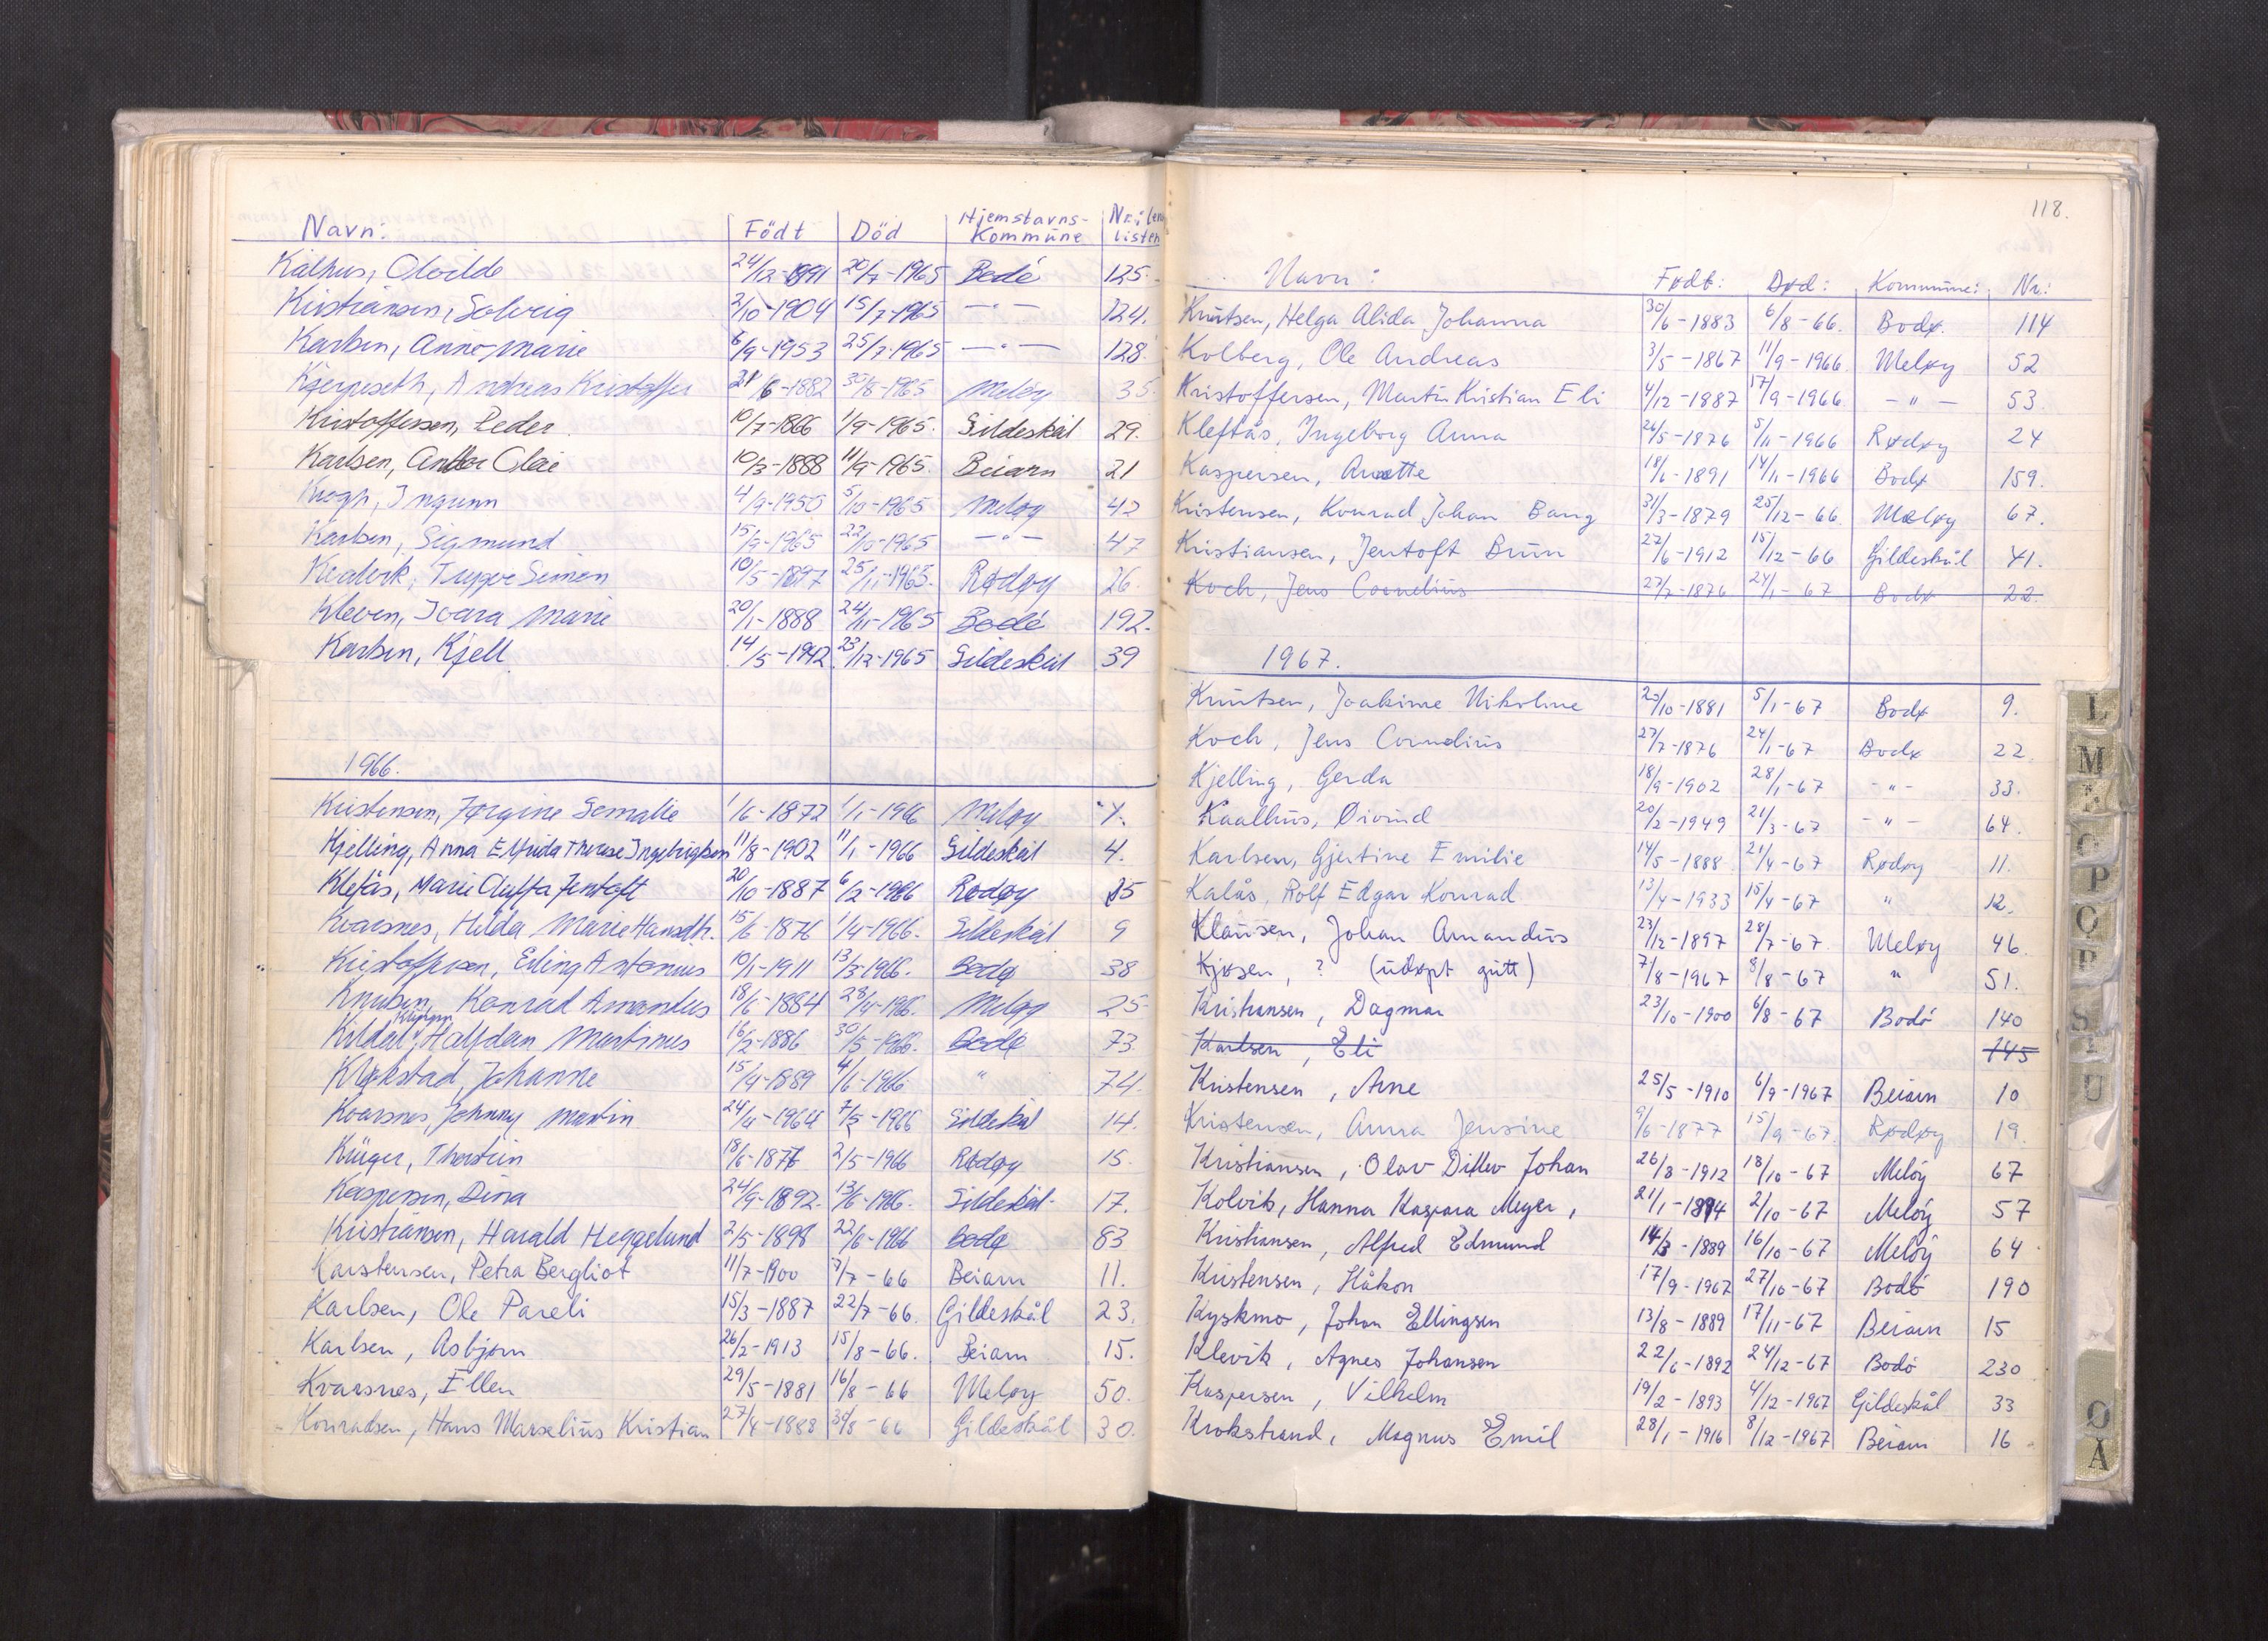 Navn: Födt Död Hjemstavns-Kommune Nr. i listen
Kålhus, Clotilde 24/12-1891 20/7-1965 Bodö 125.
Kristiansen, Solveig 2/10-1904 15/7-1965 —"— 124.
Karlsen, Anne-Marie 6/9-1953 25/7-1965 —"— 128.
Andreas Kristoffer 21/6-1882 30/8-1965 Meløy 35.
Kristoffersen, Peder 10/7-1866 1/9-1965. Gildeskål 29.
Karlsen, Olai 10/3-1888 11/9-1965. Beiarn 21
Krogh, Ingunn 4/9-1950 5/10-1965 Meløy 42
Karlsen, Sigmund 15/9-1965 22/10-1965 —"— 47
Simon 10/5-1897 25/11-1965. Rødøy 26.
Kleven, Ivara Marie 20/1-1888 24/11-1965 Bodö 192.
Karlsen, Kjell 14/5-1942 23/12-1965 Gildeskål 39
1966.
Kristensen, Jørgine 1/6-1872 1/1-1966 Meløy
Kjelling, Anna Elfrida Therese Ingebrigtsen 11/8-1902 11/1-1966 Gildeskål 4.
Klefås, Marie Jentoft 20/10-1887 6/2-1966 Rødøy 15
Kvarsnes, Hilda Marie Hansdtr. 15/6-1876 1/4-1966. Gildeskål 9
Kristoffersen, Erling Antonius 10/1-1911 13/3-1966. Bodø 38
Knutsen, Konrad Amandus 18/6-1884 28/4-1966. Meløy 25
Kildal, Halfdan Martinus 16/2-1886 30/5-1966. Bodø 73
Klokstad, Johanne 15/9-1889 4/6-1966 " 74.
Kvarsnes, Johnny Martin 24/4-1964 7/5-1966 Gildeskål 14.
Krüger, Thorstein 18/6-1876 2/5-1966 Rødøy 15.
Kaspersen, Dina 24/9-1892. 13/6-1966. Gildeskål. 17.
Kristiansen, Harald Heggelund 2/5-1898 22/6-1966 Bodø 83
Karstensen, Petra Bergliot 11/7-1900 7/7-66 Beiarn 11.
Karlsen, Ole Pareli 15/3-1887 22/7-66. Gildeskål 23.
Karlsen, Asbjørn 26/2-1913 15/8-66. Beiarn 15.
Kvarsnes, Ellen 29/5-1881 16/8-66 Meløy 50.
Konradsen, Hans Marselius Kristian 27/4-1888 30/8-66 Gildeskål 30.
118.
Navn: Født: Død: Kommune: Nr.:
Knutsen, Helga Alida Johanna 30/6-1883 6/8-66. Bodø. 114
Kolberg, Ole Andreas 3/5-1867 11/9-1966. Meløy 52
Kristoffersen, Martin Kristian Eli 4/12-1887 17/9-1966. —"— 53.
Kleftås, Ingeborg Anna 26/5-1876 5/11-1966 Rødøy 24
Kaspersen, Anette 18/6-1891 14/11-1966 Bodø 159.
Kristensen, Konrad Johan Bang 31/3-1879 25/12-66. Meløy 67.
Kristiansen, Jentoft Brun 27/6-1912 15/12-66 Gildeskål 41.
Koch, Jens Cornelius 27/7-1876 24/1-67 Bodø 22.
1967.
Knutsen, Joakime Nikoline 23/10-1881 5/1-67 Bodø 9.
Koch, Jens Cornelius 27/7-1876 24/1-67 Bodø 22.
Kjelling, Gerda 18/9-1902 28/1-67 -"- 33.
Kaalhus, Øivind 20/2-1949 21/3-67 -"- 64.
Karlsen, Gjertine Emilie 14/5-1888 21/4-67 Rødøy 11.
Kalås, Rolf Edgar Konrad 13/4-1933 15/4-67 " 12.
Klausen, Johan Amandus 23/12-1897 28/7-67. Meløy 46.
Kjøsen, ? (udøpt gutt) 7/8-1967 8/8-67 " 51.
Kristiansen, Dagmar 23/10-1900 6/8-67 Bodö 140
Karlsen, Eli 145
Kristensen, Arne 25/5-1910 6/9-1967 Beiarn 10
Kristensen, Anna Jensine 9/6-1877 15/9-67. Rødøy 19.
Kristiansen, Olav Ditlev Johan 26/8-1912 18/10-67 Melöy 67
Kolvik, Hanna Kaspara Meyer, 21/1-1894 2/10-67 Melöy 57
Kristiansen, Alfred Edmund 14/3-1889 16/10-67 Melöy 64
Kristensen, Håkon 17/9-1967 27/10-67 Bodö 190
Kyskmo, Johan Ellingsen 13/8-1889 17/11-67 Beiarn 15
Klevik, Agnes Johansen 22/6-1892 24/12-67 Bodö 230
Kaspersen, Vilhelm 19/2-1893 4/12-1967 Gildeskål 33
Krokstrand, Magnus Emil 28/1-1916 8/12-1967 Beiarn 16
L
M
O
P
U
Ö
Å